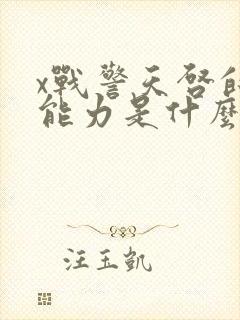 x戰警天啓的
能力是什麼
汪玉凱